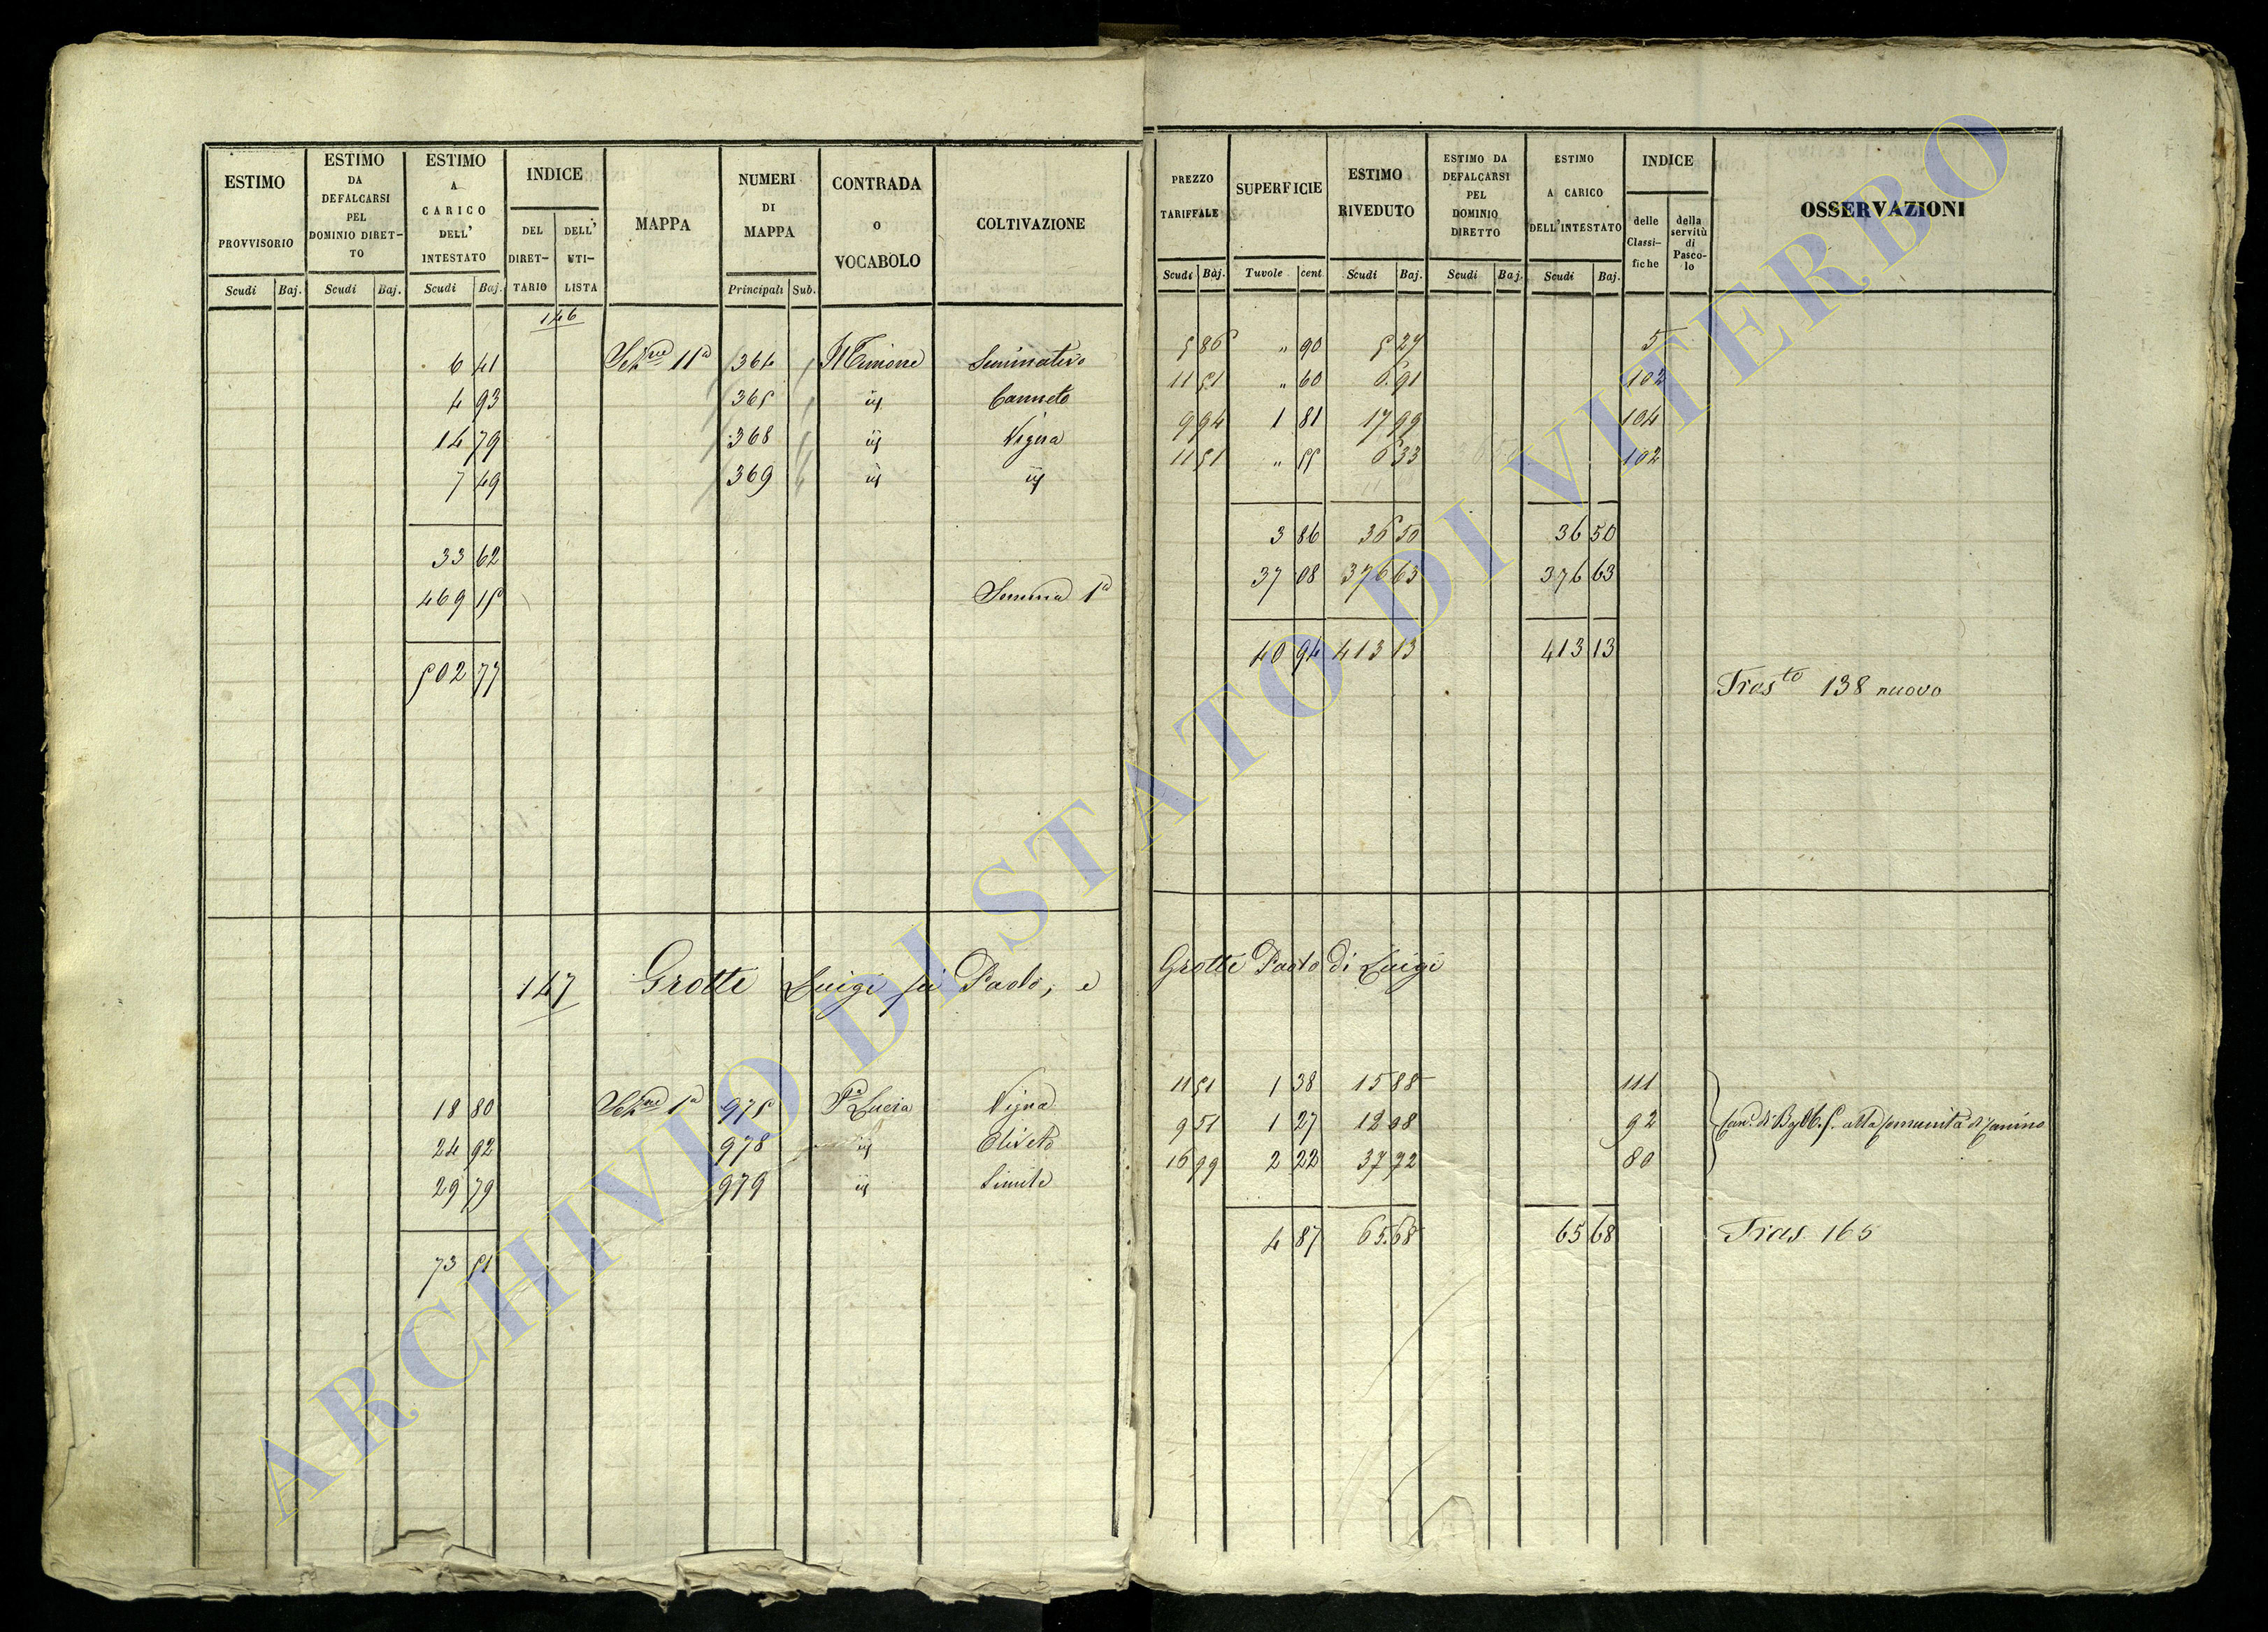 ESTIMO PROVVISORIO | ESTIMO DA DEFALCARSI PEL DOMINIO DIRETTO | ESTIMO A CARICO DELL' INTESTATO | INDICE | MAPPA | NUMERI DI MAPPA | CONTRADA o VOCABOLO | COLTIVAZIONE | PREZZO TARIFFALE | SUPERFICIE | ESTIMO RIVEDUTO | ESTIMO DA DEFALCARSI PEL DOMINIO DIRETTO | ESTIMO A CARICO DELL'INTESTATO | INDICE | OSSERVAZIONI
DEL DIRET-TARIO | DELL' UTI-LISTA | delle Classi-fiche | della servitù di Pasco-lo
Scudi | Baj. | Scudi | Baj. | Scudi | Baj. | Principali | Sub. | Scudi | Bàj. | Tavole | cent | Scudi | Baj. | Scudi | Baj. | Scudi | Baj.
146
6 41 | Sezne 11a | 364 | Il Timone | Seminativo | 5 86 | " 90 | 5 27 | 5
4 93 | 365 | id | Canneto | 11 51 | " 60 | 6 91 | 102
14 79 | 368 | id | Vigna | 9 94 | 1 81 | 17 99 | 104
7 49 | 369 | id | id | 11 51 | " 55 | 6 33 | 102
33 62 | 3 86 | 36 50 | 36 50
469 15 | Summa 1a | 37 08 | 376 63 | 376 63
502 77 | 40 94 | 413 13 | 413 13
Trasto 138 nuovo
147 Grotti Luigi fu Paolo, e Grotti Paolo di Luigi
18 80 | Sezne 1a | 975 | Sa Lucia | Vigna | 11 51 | 1 38 | 15 88 | 111
24 92 | 978 | id | Oliveto | 9 51 | 1 27 | 12 08 | 92 | alla Comunità di Canino
29 79 | 979 | id | Simile | 16 99 | 2 22 | 37 72 | 80
73 51 | 4 87 | 65.68 | 65 68 | Tras. 165
ARCHIVIO DI STATO DI VITERBO